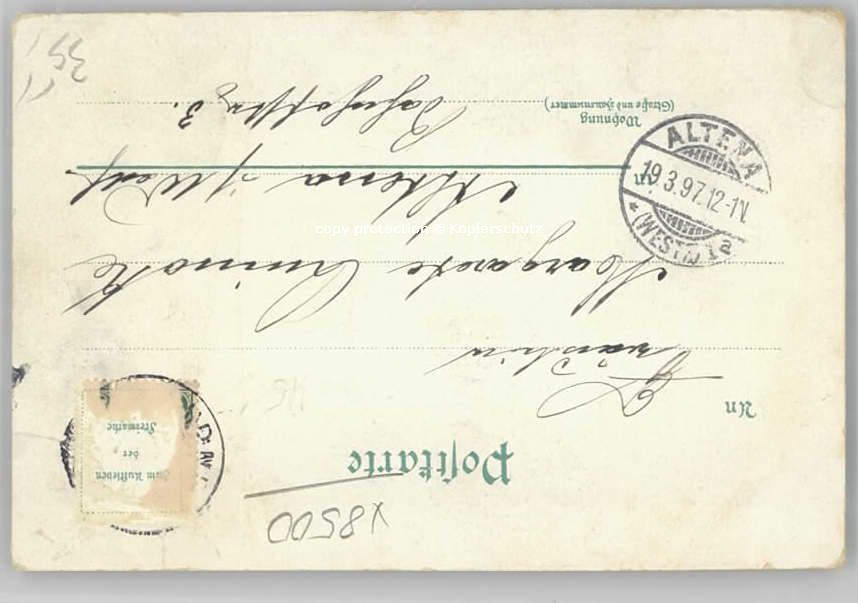 x8500
Postkarte
Zum Aufkleben
der
Freimarke
An
Fräulein
Margarete
Altena i/Westf.
in
Wohnung
(Straße und Hausnummer)
Bahnhofstr. 3.
ALTENA
19.3.97.12-1N.
* (WESTF.) 1a
copy protection © Kopierschutz
35